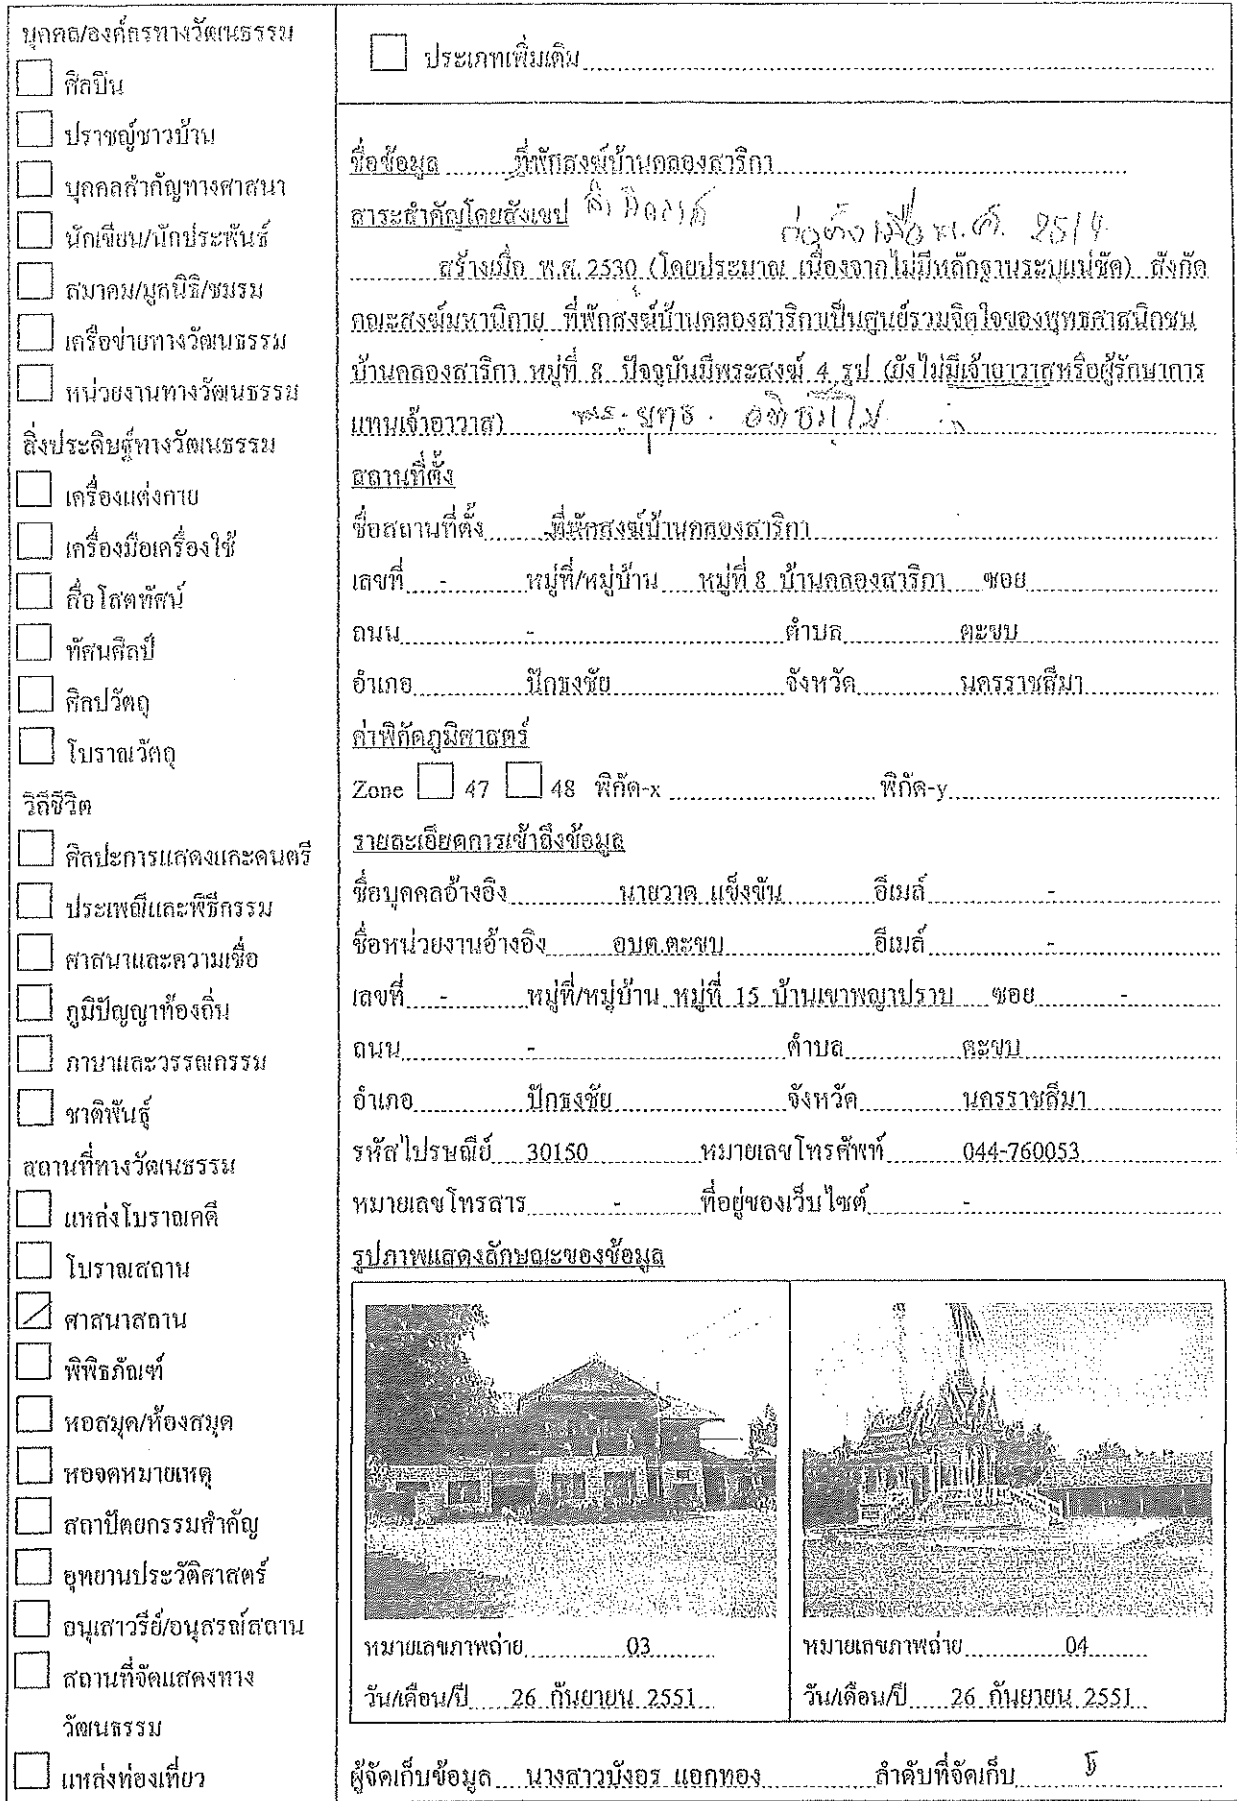 บุคคล/องค์กรทางวัฒนธรรม
ศิลปิน
ปราชญ์ชาวบ้าน
บุคคลสำคัญทางศาสนา
นักเขียน/นักประพันธ์
สมาคม/มูลนิธิ/ชมรม
เครือข่ายทางวัฒนธรรม
หน่วยงานทางวัฒนธรรม
สิ่งประดิษฐ์ทางวัฒนธรรม
เครื่องแต่งกาย
เครื่องมือเครื่องใช้
สื่อโสตทัศน์
ทัศนศิลป์
ศิลปวัตถุ
โบราณวัตถุ
วิถีชีวิต
ศิลปะการแสดงและดนตรี
ประเพณีและพิธีกรรม
ศาสนาและความเชื่อ
ภูมิปัญญาท้องถิ่น
ภาษาและวรรณกรรม
ชาติพันธุ์
สถานที่ทางวัฒนธรรม
แหล่งโบราณคดี
โบราณสถาน
ศาสนาสถาน
พิพิธภัณฑ์
หอสมุด/ห้องสมุด
หอจดหมายเหตุ
สถาปัตยกรรมสำคัญ
อุทยานประวัติศาสตร์
อนุเสาวรีย์/อนุสรณ์สถาน
สถานที่จัดแสดงทาง
วัฒนธรรม
แหล่งท่องเที่ยว
ประเภทเพิ่มเติม
ชื่อข้อมูล ที่พักสงฆ์บ้านคลองสาริกา
สาระสำคัญโดยสังเขป ก่อตั้งเมื่อ พ.ศ. 2514
สร้างเมื่อ พ.ศ. 2530 (โดยประมาณ เนื่องจากไม่มีหลักฐานระบุแน่ชัด) สังกัด
คณะสงฆ์มหานิกาย ที่พักสงฆ์บ้านคลองสาริกาเป็นศูนย์รวมจิตใจของพุทธศาสนิกชน
บ้านคลองสาริกา หมู่ที่ 8 ปัจจุบันมีพระสงฆ์ 4 รูป (ยังไม่มีเจ้าอาวาสหรือผู้รักษาการ
แทนเจ้าอาวาส) พระ
สถานที่ตั้ง
ชื่อสถานที่ตั้ง ที่พักสงฆ์บ้านคลองสาริกา
เลขที่ - หมู่ที่/หมู่บ้าน หมู่ที่ 8 บ้านคลองสาริกา ซอย
ถนน - ตำบล ตะขบ
อำเภอ ปักธงชัย จังหวัด นครราชสีมา
ค่าพิกัดภูมิศาสตร์
Zone 47 48 พิกัด-x พิกัด-y
รายละเอียดการเข้าถึงข้อมูล
ชื่อบุคคลอ้างอิง นายวาด แข็งขัน อีเมล์ -
ชื่อหน่วยงานอ้างอิง อบต.ตะขบ อีเมล์ -
เลขที่ - หมู่ที่/หมู่บ้าน หมู่ที่ 15 บ้านเขาพญาปราบ ซอย -
ถนน - ตำบล ตะขบ
อำเภอ ปักธงชัย จังหวัด นครราชสีมา
รหัสไปรษณีย์ 30150 หมายเลขโทรศัพท์ 044-760053
หมายเลขโทรสาร - ที่อยู่ของเว็บไซต์ -
รูปภาพแสดงลักษณะของข้อมูล
หมายเลขภาพถ่าย 03
วัน/เดือน/ปี 26 กันยายน 2551
หมายเลขภาพถ่าย 04
วัน/เดือน/ปี 26 กันยายน 2551
ผู้จัดเก็บข้อมูล นางสาวบังอร แอกทอง ลำดับที่จัดเก็บ